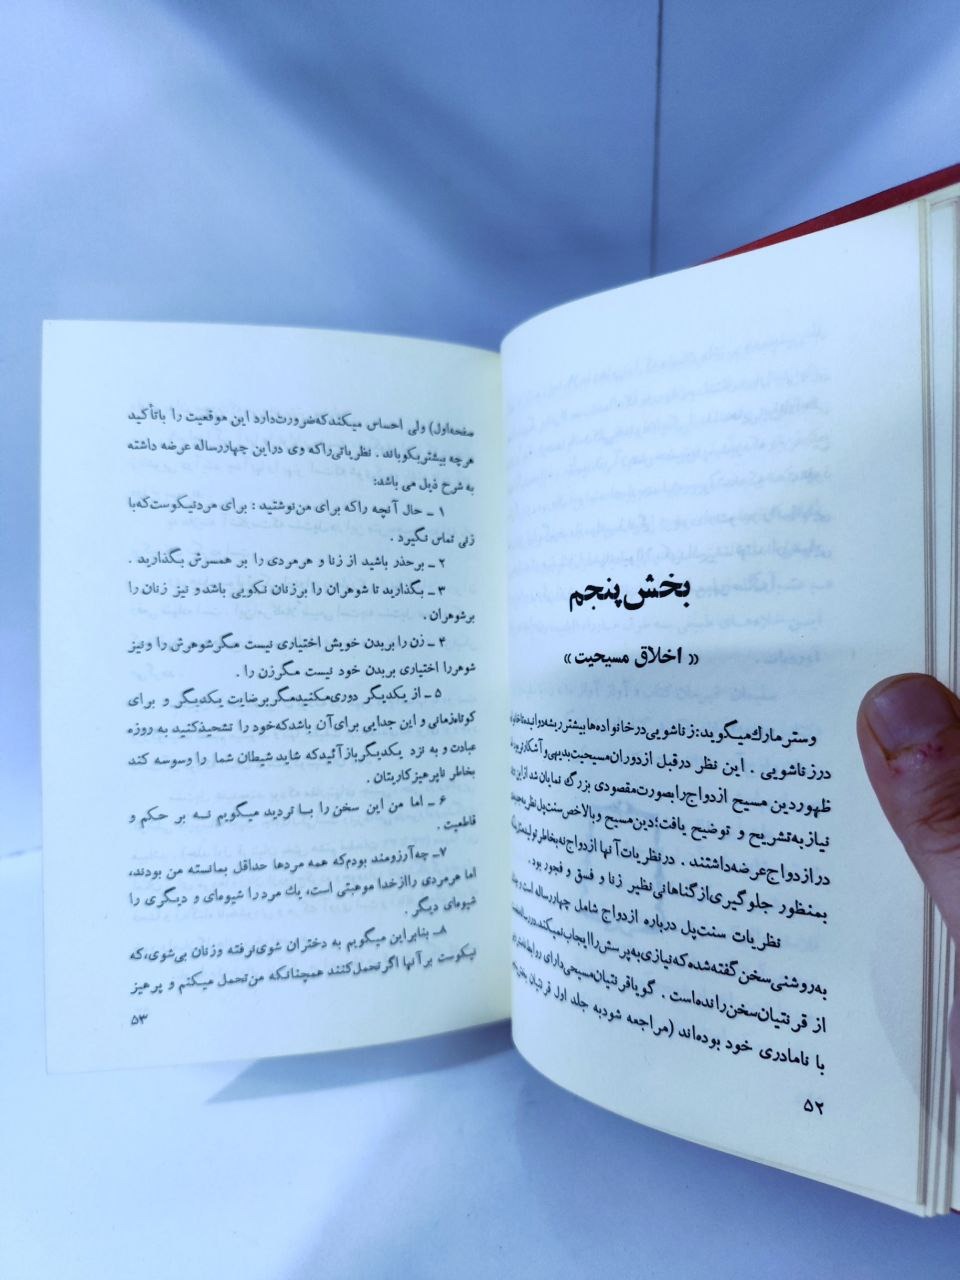 بخش پنجم
« اخلاق مسیحیت »
وسترمارك میگوید: زناشویی درخانواده‌ها بیشتر ریشه دوانیده تا خانواده
درزناشویی . این نظر درقبل ازدوران مسیحیت بدیهی و آشکار
ظهوردین مسیح ازدواج رابصورت مقصودی بزرگ نمایان شد از این
نیازبه تشریح و توضیح یافت؛ دین مسیح و بالاخص سنت پل نظریه
درازدواج عرضه داشتند . درنظریات آنها ازدواج نه بخاطر تولیدمثل
بمنظور جلوگیری از گناهانی نظیر زنا و فسق و فجور بود .
نظریات سنت پل درباره ازدواج شامل چهاررساله است و
به روشنی سخن گفته شده که نیازی به پرسش را ایجاب نمیکند، در
از قرنتیان سخن رانده است . گویا قرنتیان مسیحی دارای روابط
با نامادری خود بوده‌اند (مراجعه شود به جلد اول قرنتیان بخش
۵۲
صفحه اول) ولی احساس میکند که ضرورت دارد این موقعیت را باتأکید
هرچه بیشتر بکوباند . نظریاتی راکه وی دراین چهاررساله عرضه داشته
به شرح ذیل می باشد:
۱ ــ حال آنچه راکه برای من نوشتید : برای مردنیکوست که با
زنی تماس نگیرد .
۲ ــ برحذر باشید از زنا و هرمردی را بر همسرش بگذارید .
۳ ــ بگذارید تا شوهران را برزنان نکویی باشد و نیز زنان را
برشوهران .
۴ ــ زن را بربدن خویش اختیاری نیست مگرشوهرش را ونیز
شوهررا اختیاری بربدن خود نیست مگرزن را .
۵ ــ از یکدیگر دوری مکنید مگر برضایت یکدیگر و برای
کوتاه زمانی و این جدایی برای آن باشد که خود را تشحیذ کنید به روزه،
عبادت و به نزد یکدیگر بازآئید که شاید شیطان شما را وسوسه کند
بخاطر ناپرهیزکاریتان .
۶ ــ اما من این سخن را بـا تردید میگویم نـه بر حکم و
قاطعیت .
۷ــ چه آرزومند بودم که همه مردها حداقل بمانسته من بودند،
اما هرمردی رااز خدا موهبتی است، یك مرد را شیوه‌ای و دیگری را
شیوه‌ای دیگر .
۸ ــ بنابراین میگویم به دختران شوی نرفته وزنان بی‌شوی، که
نیکوست برآنها اگر تحمل کنند همچنانکه من تحمل میکنم و پرهیز
۵۳